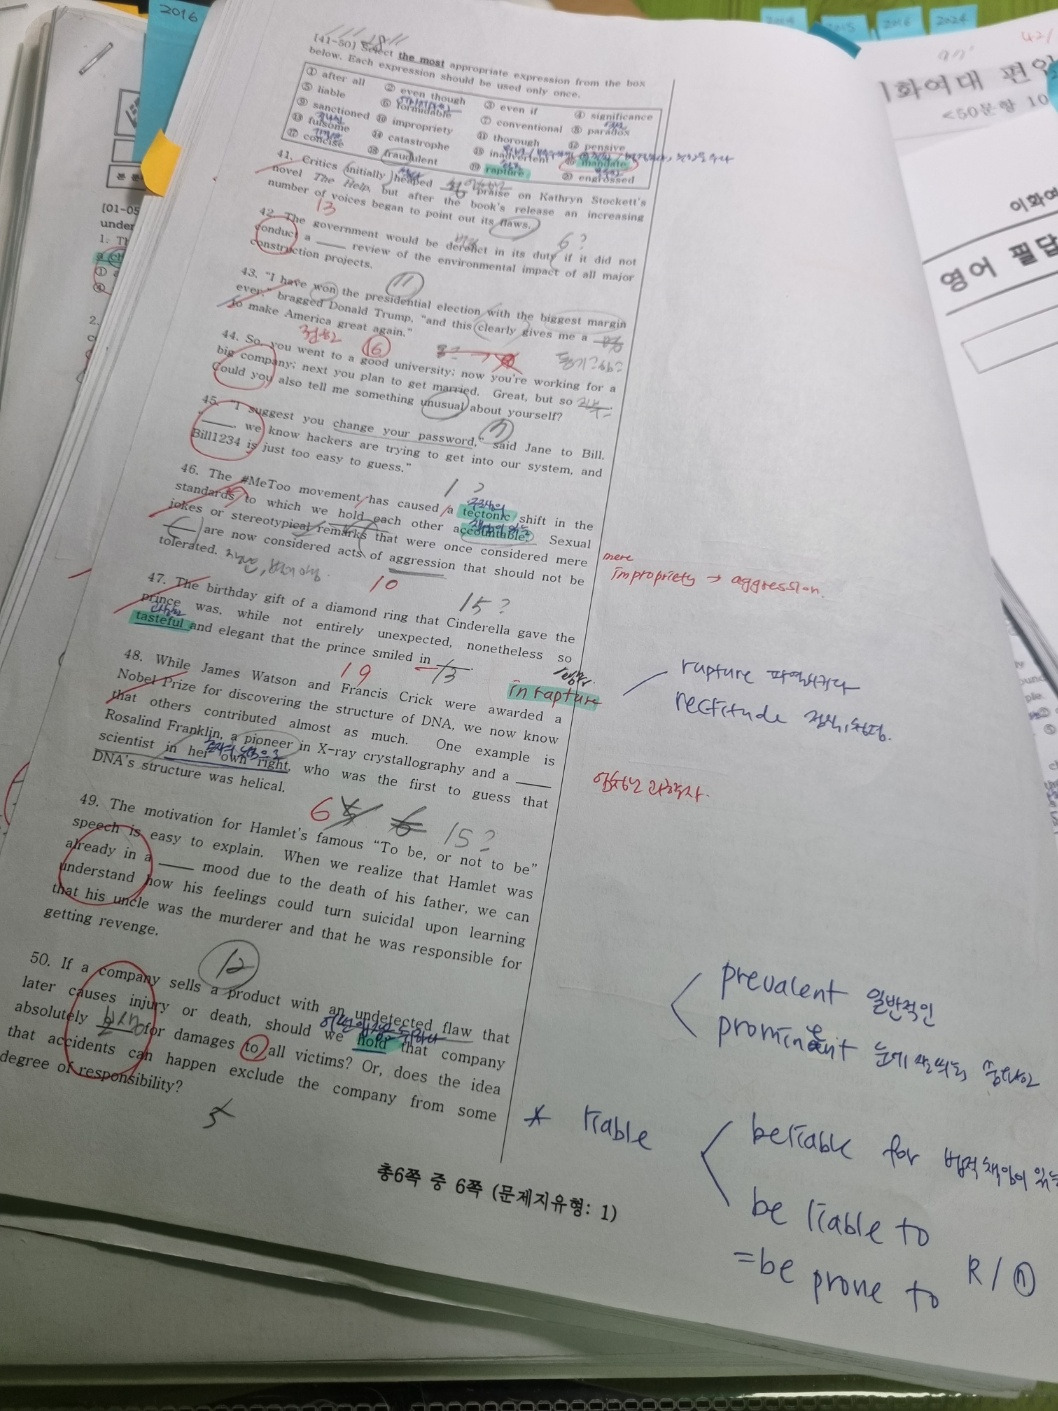 2016
[41-50] Select the most appropriate expression from the box
below. Each expression should be used only once.
① after all ② even though ③ even if ④ significance
⑤ liable ⑥ formidable ⑦ conventional ⑧ paradox
⑨ sanctioned ⑩ impropriety ⑪ thorough ⑫ pensive
⑬ fulsome ⑭ catastrophe ⑮ inadvertent ⑯ mandate
⑰ concise ⑱ fraudulent ⑲ rapture ⑳ engrossed
41. Critics initially heaped praise on Kathryn Stockett's
novel The Help, but after the book's release an increasing
number of voices began to point out its flaws.
13
42. The government would be derelict in its duty if it did not
6?
conduct a ____ review of the environmental impact of all major
construction projects.
11
43. "I have won the presidential election with the biggest margin
ever," bragged Donald Trump, "and this clearly gives me a
to make America great again."
16
44. So, you went to a good university; now you're working for a
big company; next you plan to get married. Great, but so
Could you also tell me something unusual about yourself?
45. "I suggest you change your password," said Jane to Bill.
"____, we know hackers are trying to get into our system, and
Bill1234 is just too easy to guess."
1 ?
46. The #MeToo movement has caused a tectonic shift in the
standards to which we hold each other accountable. Sexual
jokes or stereotypical remarks that were once considered mere
____ are now considered acts of aggression that should not be
tolerated.
mere
impropriety → aggression.
10
15?
47. The birthday gift of a diamond ring that Cinderella gave the
prince was, while not entirely unexpected, nonetheless so
tasteful and elegant that the prince smiled in ____.
13
19
in rapture
rapture
rectitude 정직, 청렴.
48. While James Watson and Francis Crick were awarded a
Nobel Prize for discovering the structure of DNA, we now know
that others contributed almost as much. One example is
Rosalind Franklin, a pioneer in X-ray crystallography and a ____
scientist in her own right, who was the first to guess that
DNA's structure was helical.
엄청난 과학자.
6
15?
49. The motivation for Hamlet's famous "To be, or not to be"
speech is easy to explain. When we realize that Hamlet was
already in a ____ mood due to the death of his father, we can
understand how his feelings could turn suicidal upon learning
that his uncle was the murderer and that he was responsible for
getting revenge.
12
50. If a company sells a product with an undetected flaw that
later causes injury or death, should we hold that company
absolutely ____ for damages to all victims? Or, does the idea
that accidents can happen exclude the company from some
degree of responsibility?
5
prevalent 일반적인
prominent 눈에 잘 띄는, 중요한
* liable
be liable for 법적 책임이 있는
be liable to
= be prone to R / n
총6쪽 중 6쪽 (문제지유형: 1)
[01-05
under
1. Th
2.
2015
2016
2024
화여대 편입
<50문항 10
이화여
영어 필답